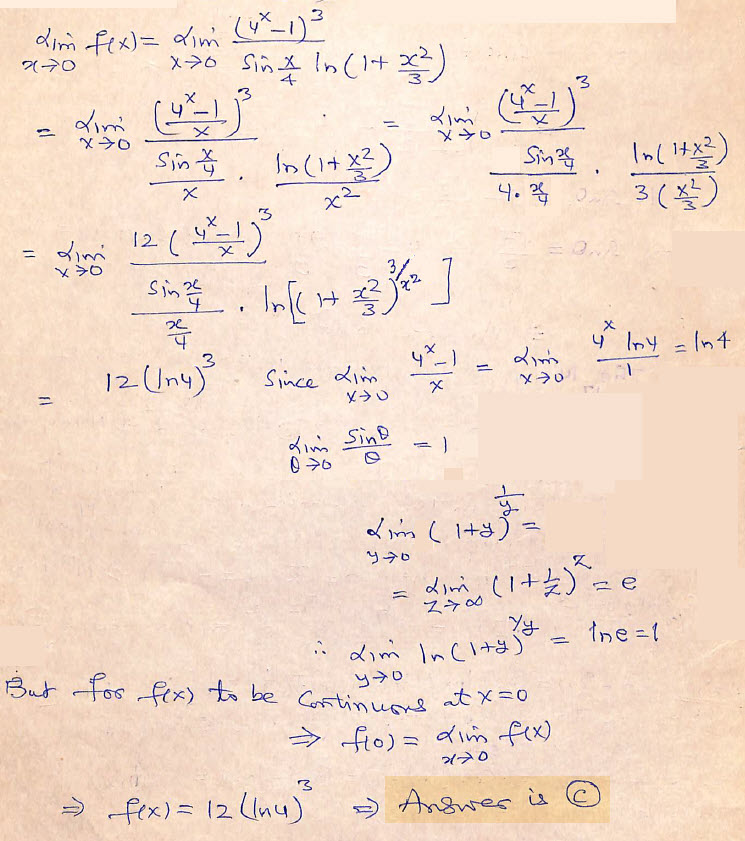 lim x→0 f(x) = lim x→0 (4^x − 1)^3 / (Sin x/4 ln(1 + x²/3))
= lim x→0 ((4^x − 1)/x)^3 / ((Sin x/4)/x · ln(1 + x²/3)/x²) = lim x→0 ((4^x − 1)/x)^3 / ((Sin x/4)/(4 · x/4) · ln(1 + x²/3)/(3(x²/3)))
= lim x→0 12((4^x − 1)/x)^3 / ((Sin x/4)/(x/4) · ln[(1 + x²/3)^(3/x²)])
= 12(ln4)^3 Since lim x→0 (4^x − 1)/x = lim x→0 (4^x ln4)/1 = ln4
lim θ→0 Sinθ/θ = 1
lim y→0 (1+y)^(1/y) =
= lim z→∞ (1 + 1/z)^z = e
∴ lim y→0 ln(1+y)^(1/y) = lne = 1
But for f(x) to be Continuous at x=0
⇒ f(0) = lim x→0 f(x)
⇒ f(x) = 12(ln4)^3 ⇒ Answer is Ⓒ